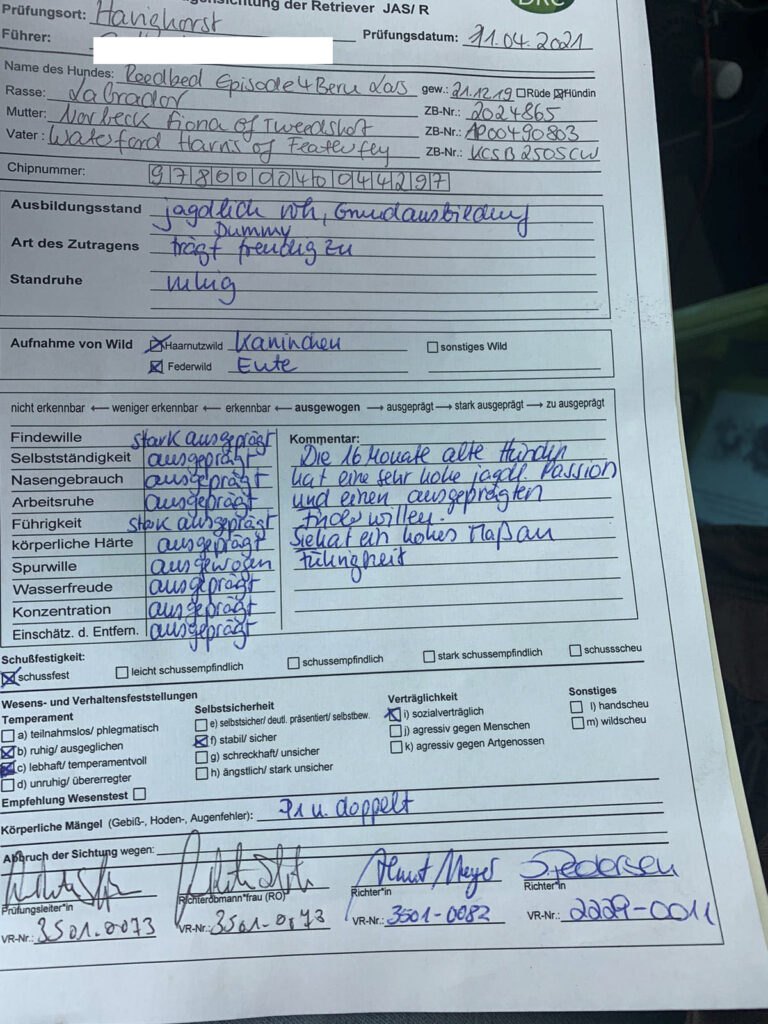 der Retriever JAS/ R
DRC
Prüfungsort: Hanighorst
Führer: Prüfungsdatum: 11.04.2021
Name des Hundes: Reedbed Episode 4 Beru Lars gew.: 21.12.19 Rüde Hündin
Rasse: Labrador ZB-Nr.: 2024865
Mutter: Norbeck Fiona of Tweedshot ZB-Nr.: AP00490803
Vater: Waterford Harris of ZB-Nr.: KCSB2505CW
Chipnummer: 978000040044297
Ausbildungsstand jagdlich Wh, Grundausbildung
Dummy
Art des Zutragens trägt freudig zu
Standruhe ruhig
Aufnahme von Wild Haarnutzwild Kaninchen sonstiges Wild
Federwild Ente
nicht erkennbar ⟵ weniger erkennbar ⟵ erkennbar ⟵ ausgewogen ⟶ ausgeprägt ⟶ stark ausgeprägt ⟶ zu ausgeprägt
Findewille stark ausgeprägt Kommentar:
Selbstständigkeit ausgeprägt Die 16 Monate alte Hündin
Nasengebrauch ausgeprägt hat eine sehr hohe jagdl. Passion
Arbeitsruhe ausgeprägt und einen ausgeprägten
Führigkeit stark ausgeprägt Findewillen.
körperliche Härte ausgeprägt Sie hat ein hohes Maß an
Spurwille ausgewogen Führigkeit
Wasserfreude ausgeprägt
Konzentration ausgeprägt
Einschätz. d. Entfern. ausgeprägt
Schußfestigkeit:
schussfest leicht schussempfindlich schussempfindlich stark schussempfindlich schussscheu
Wesens- und Verhaltensfeststellungen
Temperament Selbstsicherheit Verträglichkeit Sonstiges
a) teilnahmslos/ phlegmatisch e) selbstsicher/ deutl. präsentiert/ selbstbew. i) sozialverträglich l) handscheu
b) ruhig/ ausgeglichen f) stabil/ sicher j) agressiv gegen Menschen m) wildscheu
c) lebhaft/ temperamentvoll g) schreckhaft/ unsicher k) agressiv gegen Artgenossen
d) unruhig/ überregter h) ängstlich/ stark unsicher
Empfehlung Wesenstest
Körperliche Mängel (Gebiß-, Hoden-, Augenfehler): P1 u. doppelt
Abbruch der Sichtung wegen:
Helmut Meyer S. Pedersen
Prüfungsleiter*in Richterobmann*frau (RO) Richter*in Richter*in
VR-Nr.: 3501-0073 VR-Nr.: 3501-0073 VR-Nr.: 3501-0082 VR-Nr.: 2229-0011